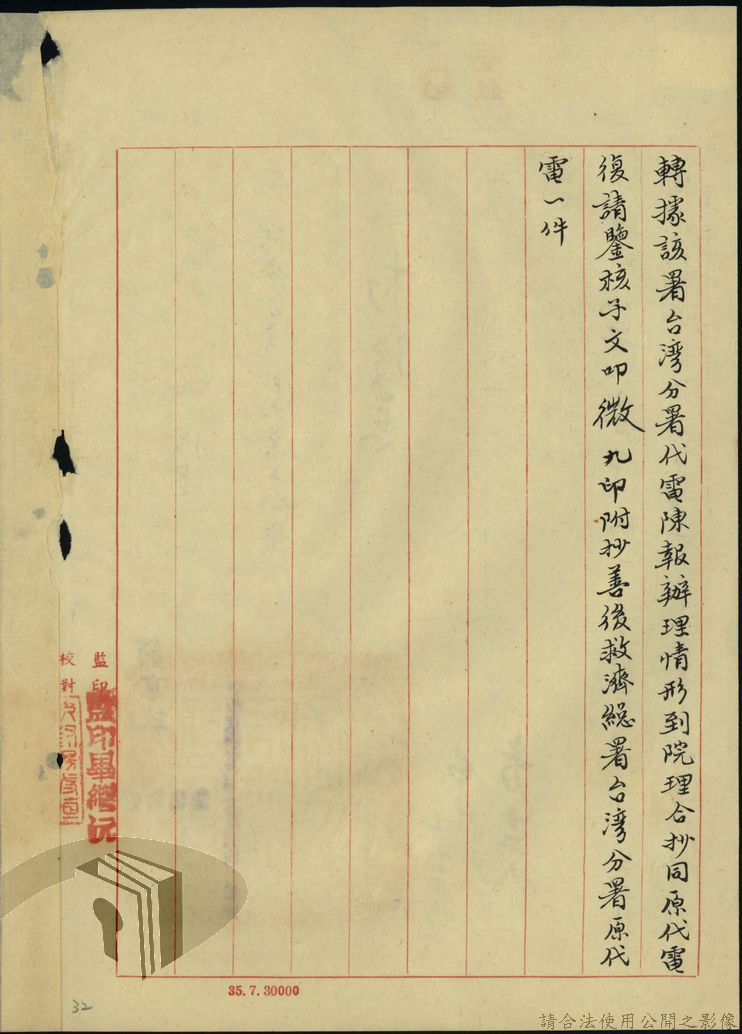 轉據該署台灣分署代電陳報辦理情形到院理合抄同原代電
復請鑒核子文叩微九印附抄善後救濟總署台灣分署原代
電一件
監印
監印畢繼沅
校對
35.7.30000
32
請合法使用公開之影像